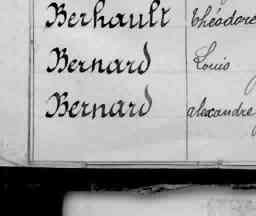 Berhault Théodore
Bernard Louis
Bernard alexandre